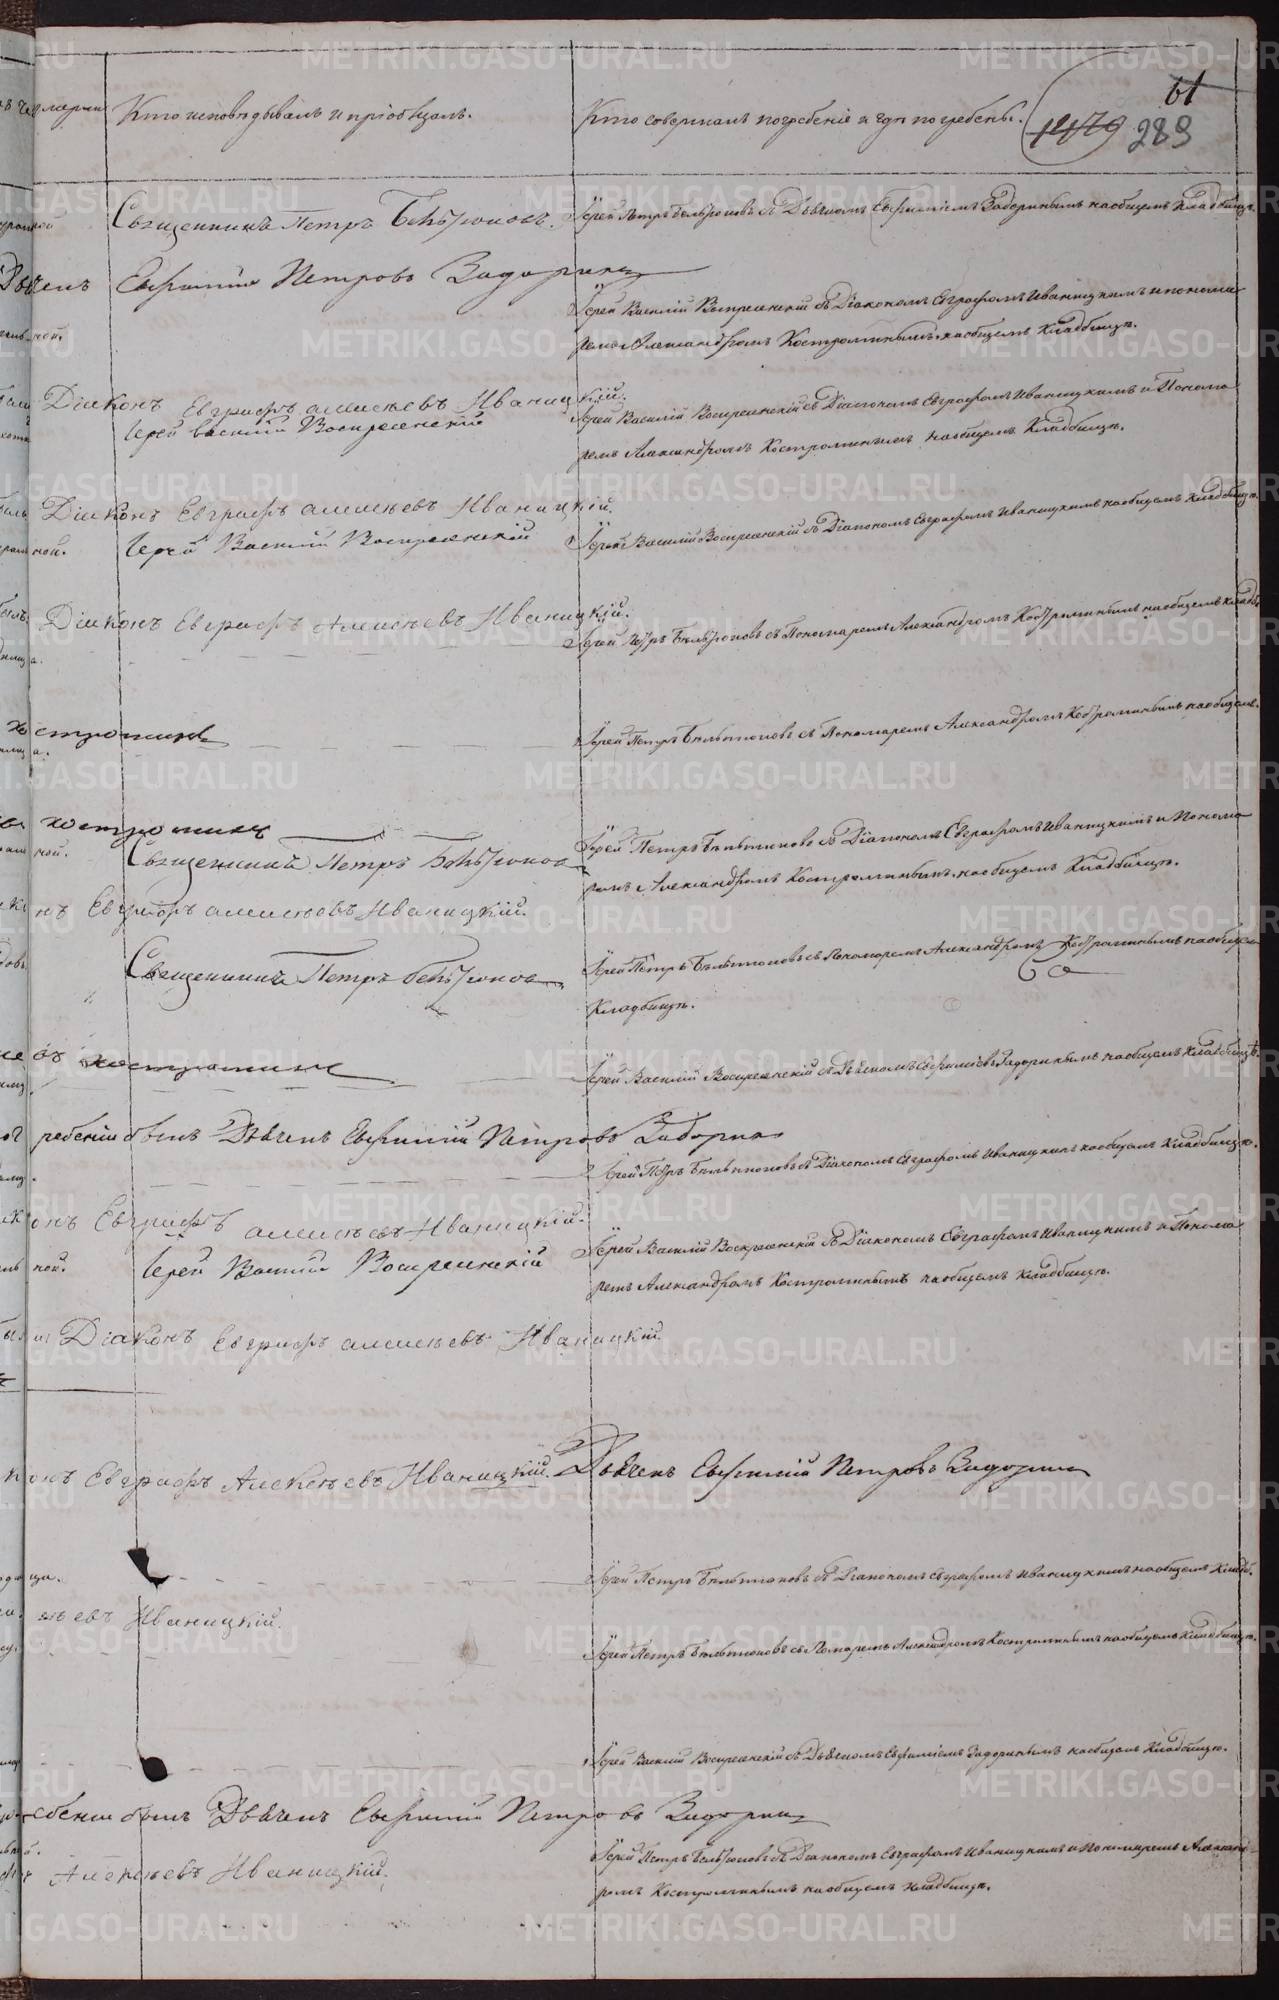 61
1479 289
Кто исповѣдывалъ и пріобщалъ.
Кто совершалъ погребеніе и гдѣ погребены.
Священникъ Петръ Бѣльтюковъ.
Іерей Петръ Бельтюковъ съ Дьячкомъ Евфиміемъ Задоринымъ на общемъ Кладбищѣ.
Дьячекъ Евфимій Петровъ Задоринъ
Іерей Василій Воскресенскій съ Діакономъ Евграфомъ Иваницкимъ и понома
ремъ Александромъ Костроминымъ на общемъ Кладбищѣ.
Діаконъ Евграфъ Алексѣевъ Иваницкій.
Іерей Василій Воскресенскій
Іерей Василій Воскресенскій съ Діакономъ Евграфомъ Иваницкимъ и Понома
ремъ Александромъ Костроминымъ на общемъ Кладбищѣ.
Діаконъ Евграфъ Алексѣевъ Иваницкій.
Іерей Василій Воскресенскій
Іерей Василій Воскресенскій съ Діакономъ Евграфомъ Иваницкимъ на общемъ Кладбищѣ.
Діаконъ Евграфъ Алексѣевъ Иваницкій.
Іерей Петръ Бѣльтюковъ съ Пономаремъ Александромъ Костроминымъ на общемъ кладб
Костроминъ
Іерей Петръ Бѣльтюковъ съ Пономаремъ Александромъ Костроминымъ на общемъ
Костроминъ
Священникъ Петръ Бѣльтюковъ
Іерей Петръ Бѣльтюковъ съ Діакономъ Евграфомъ Иваницкимъ и Понома
ремъ Александромъ Костроминымъ на общемъ Кладбищѣ.
нъ Евграфъ Алексѣевъ Иваницкій.
Священникъ Петръ Бѣльтюковъ
Іерей Петръ Бѣльтюковъ съ Пономаремъ Александромъ Костроминымъ на общемъ
Кладбищѣ.
Костроминъ
Іерей Василій Воскресенскій съ Дьячкомъ Евфиміемъ Задоринымъ на общемъ Кладбищѣ.
ребеніи былъ Дьячекъ Евфимій Петровъ Задоринъ
Іерей Петръ Бѣльтюковъ съ Діакономъ Евграфомъ Иваницкимъ на общемъ Кладбищѣ.
онъ Евграфъ Алексѣевъ Иваницкій.
Іерей Василій Воскресенскій
Іерей Василій Воскресенскій съ Діакономъ Евграфомъ Иваницкимъ и Понома
ремъ Александромъ Костроминымъ на общемъ Кладбищѣ.
Діаконъ Евграфъ Алексѣевъ Иваницкій.
конъ Евграфъ Алексѣевъ Иваницкій.
Дьячекъ Евфимій Петровъ Задоринъ
Іерей Петръ Бѣльтюковъ съ Діакономъ Евграфомъ Иваницкимъ на общемъ Кладб.
ѣевъ Иваницкій.
Іерей Петръ Бѣльтюковъ съ Помаремъ Александромъ Костроминымъ на общемъ Кладбищѣ.
Іерей Василій Воскресенскій съ Дьячкомъ Евфиміемъ Задоринымъ на общемъ Кладбищѣ.
ебеніи былъ Дьячекъ Евфимій Петровъ Задоринъ
Іерей Петръ Бельтюковъ съ Діакономъ Евграфомъ Иваницкимъ и Пономаремъ Александ
ромъ Костроминымъ на общемъ кладбищѣ.
Алексѣевъ Иваницкій.